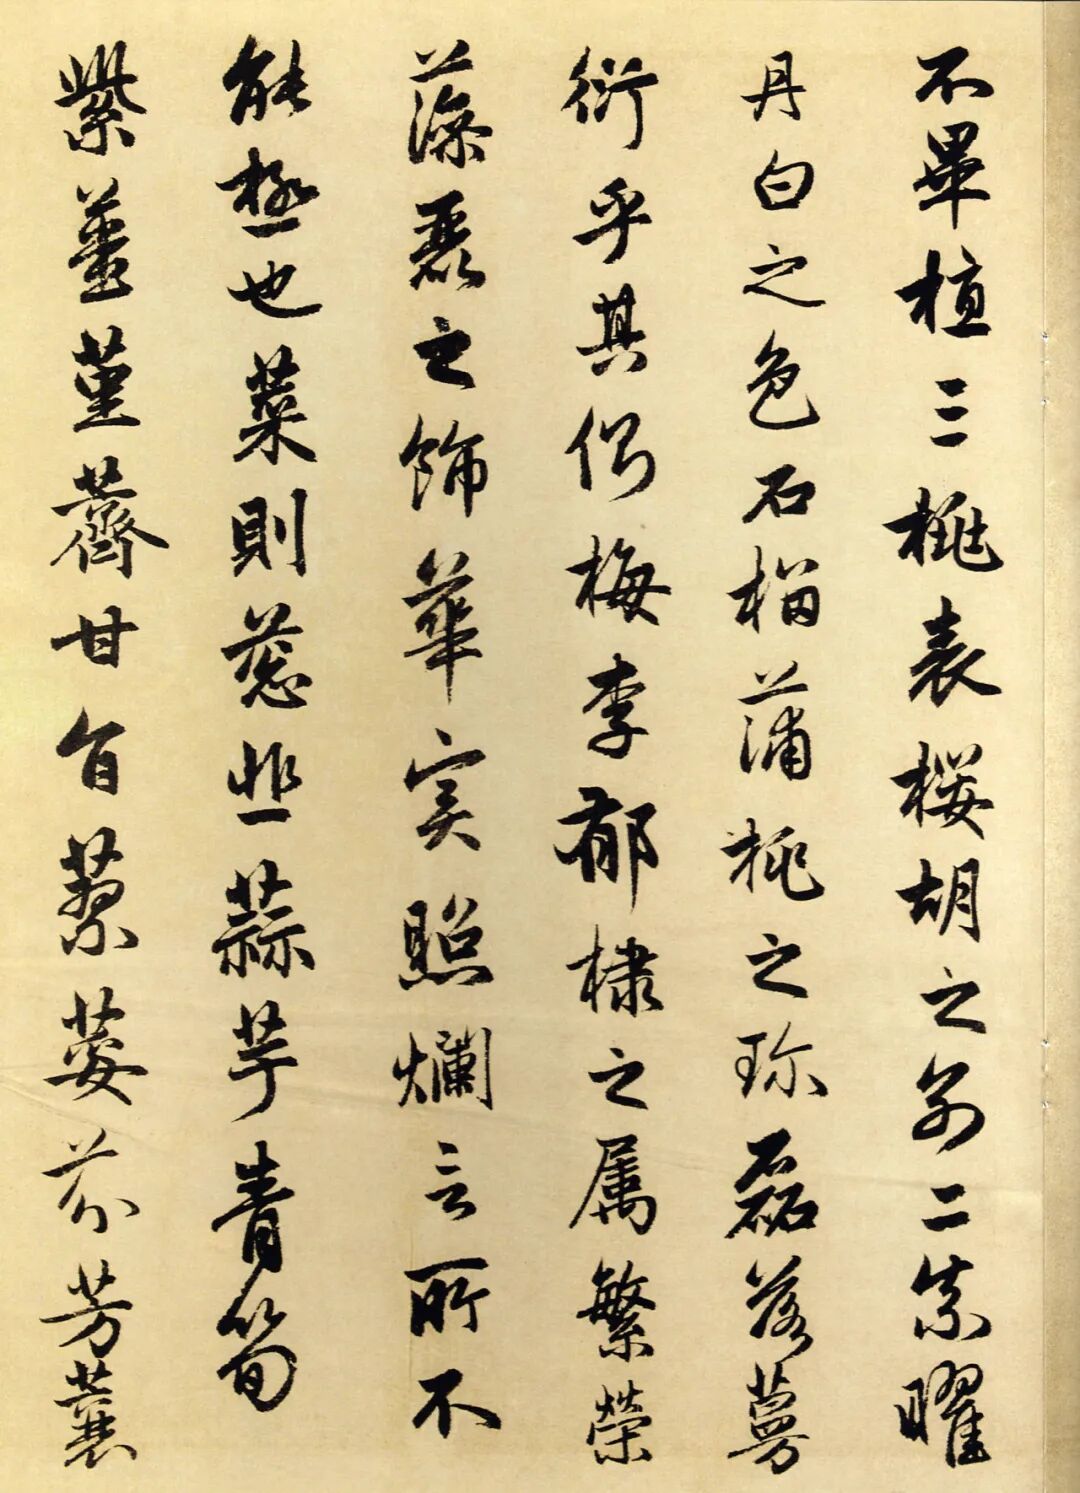 不畢植三桃表櫻胡之別二柰曜
丹白之色石榴蒲桃之珎磊落蔓
衍乎其側梅李郁棣之属繁榮
藻麗之飾華実照爛言所不
能極也菜則葱韭蒜芋青筍
紫薑堇薺甘旨蓼荽芬芳蘘